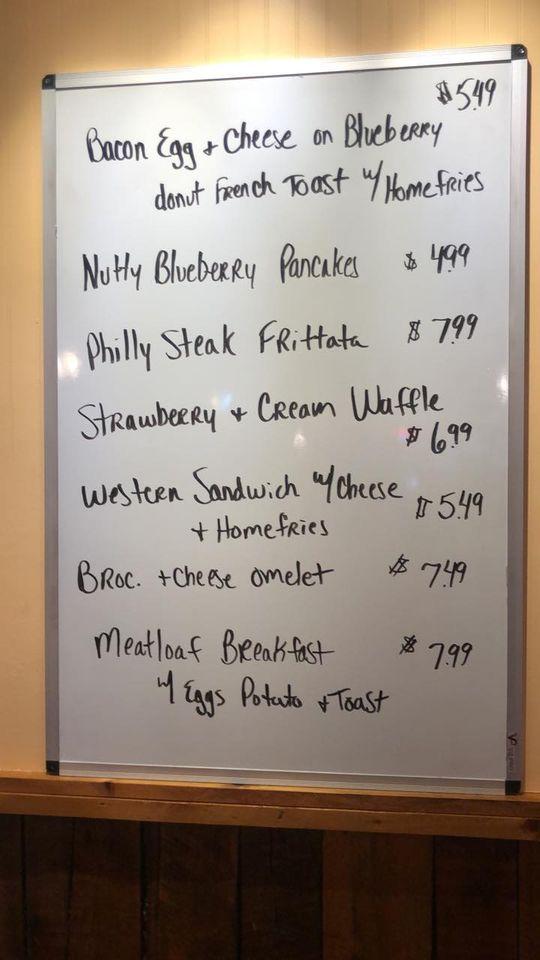 $5.49
Bacon Egg + Cheese on Blueberry
donut French Toast w/ Homefries
Nutty Blueberry Pancakes $ 4.99
Philly Steak Frittata $ 7.99
Strawberry + Cream Waffle
$ 6.99
Western Sandwich w/ Cheese
+ Homefries $ 5.49
Broc. + Cheese omelet $ 7.49
Meatloaf Breakfast $ 7.99
w/ Eggs Potato + Toast